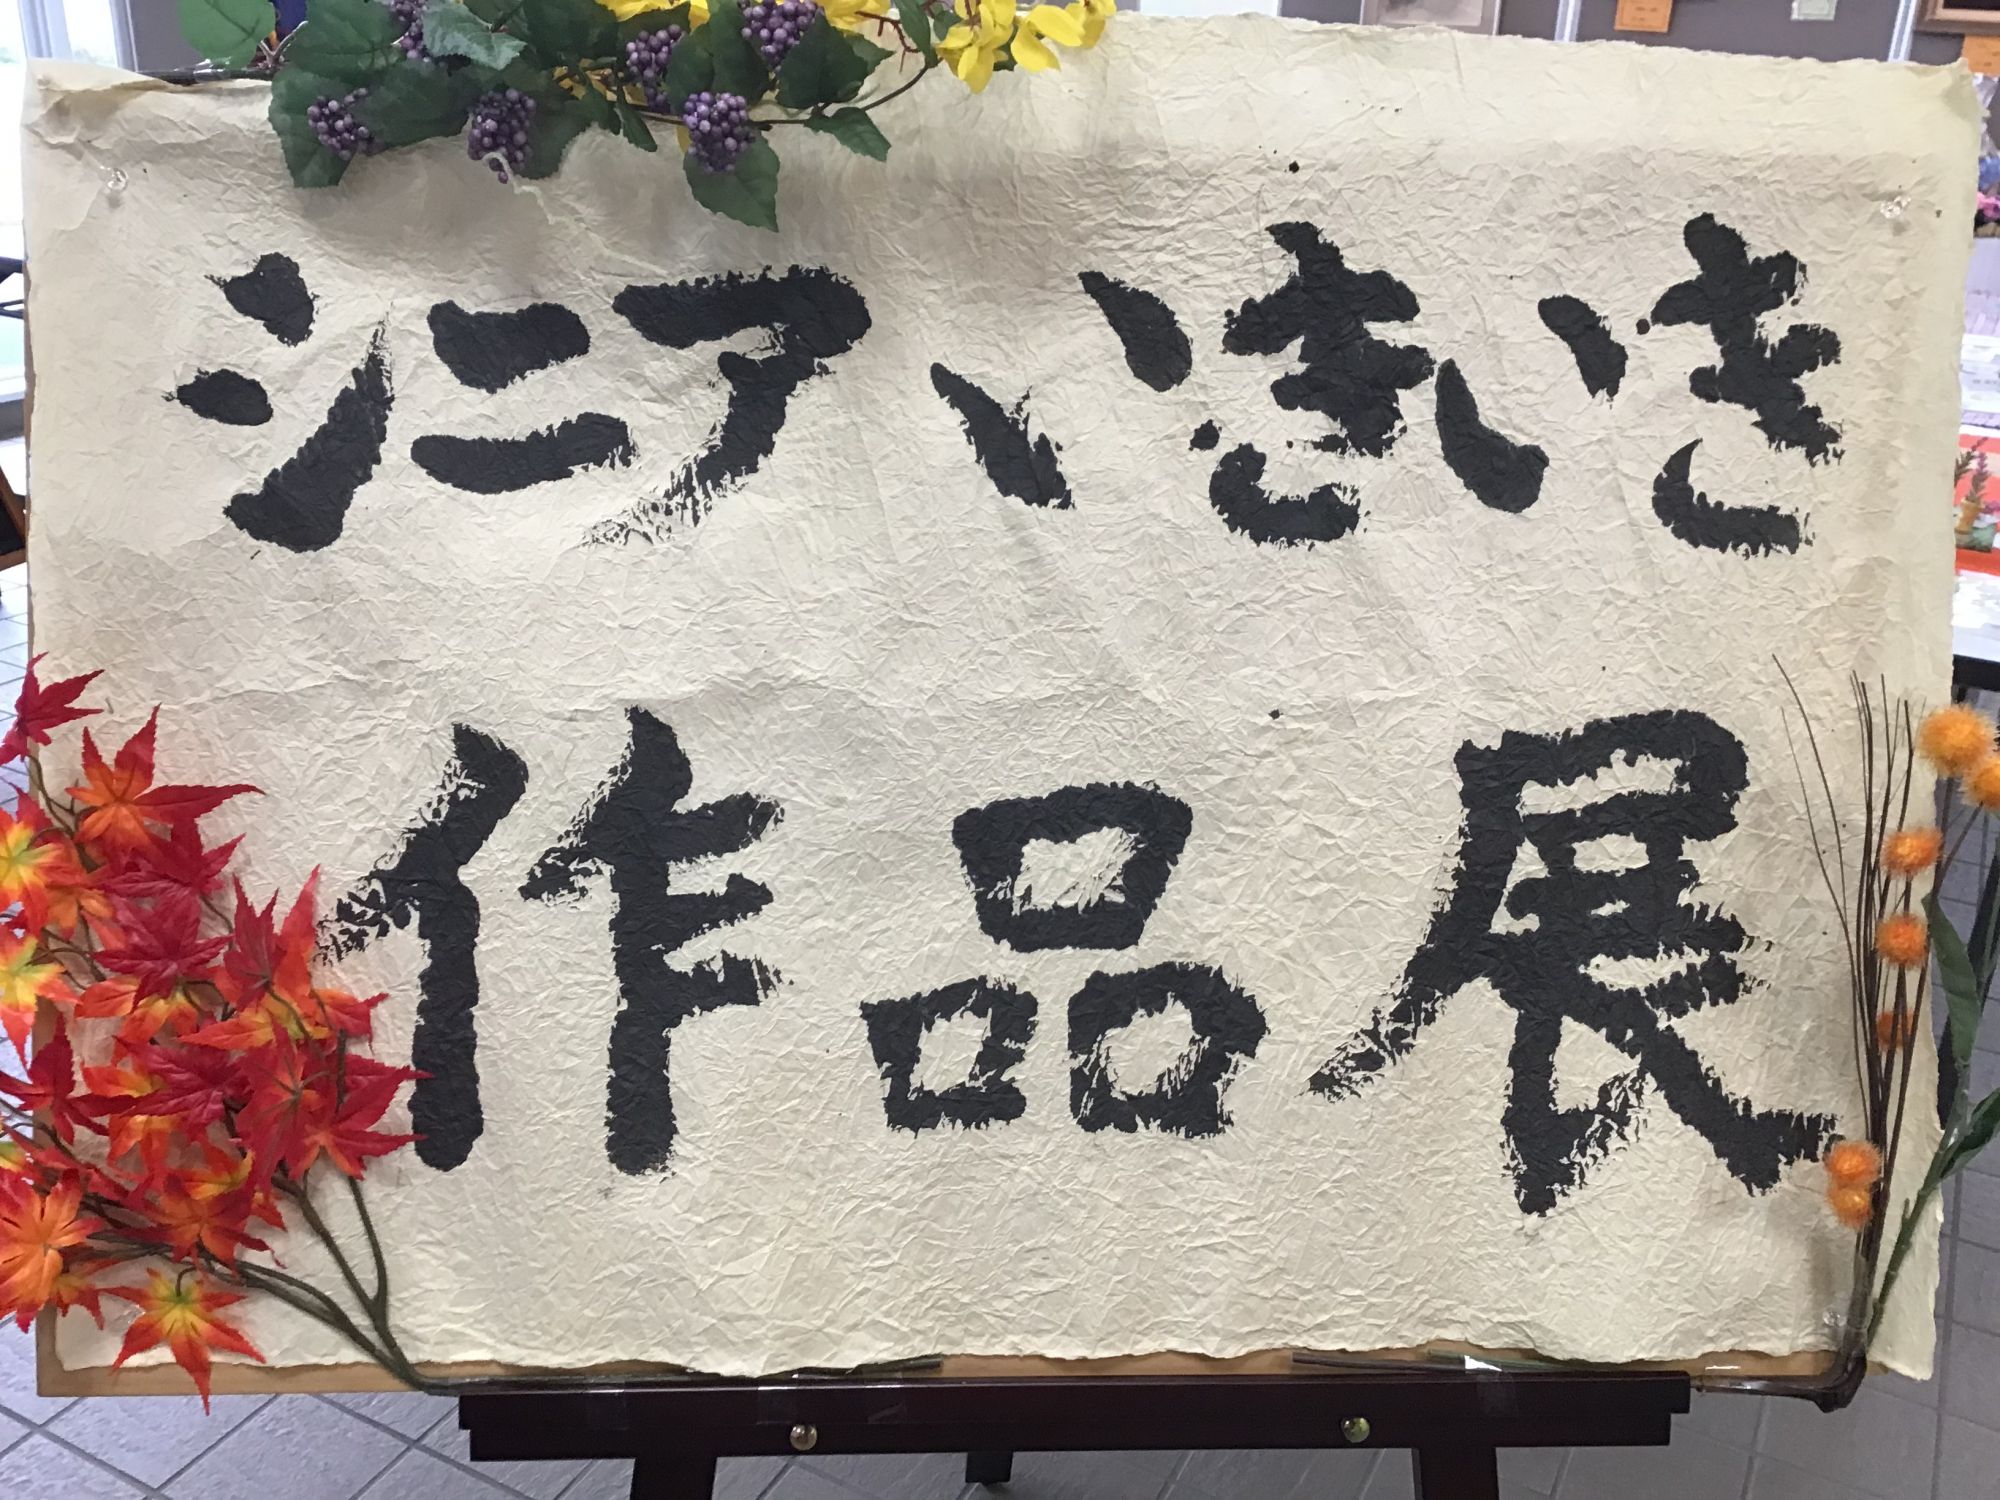 シニアいきいき
作品展